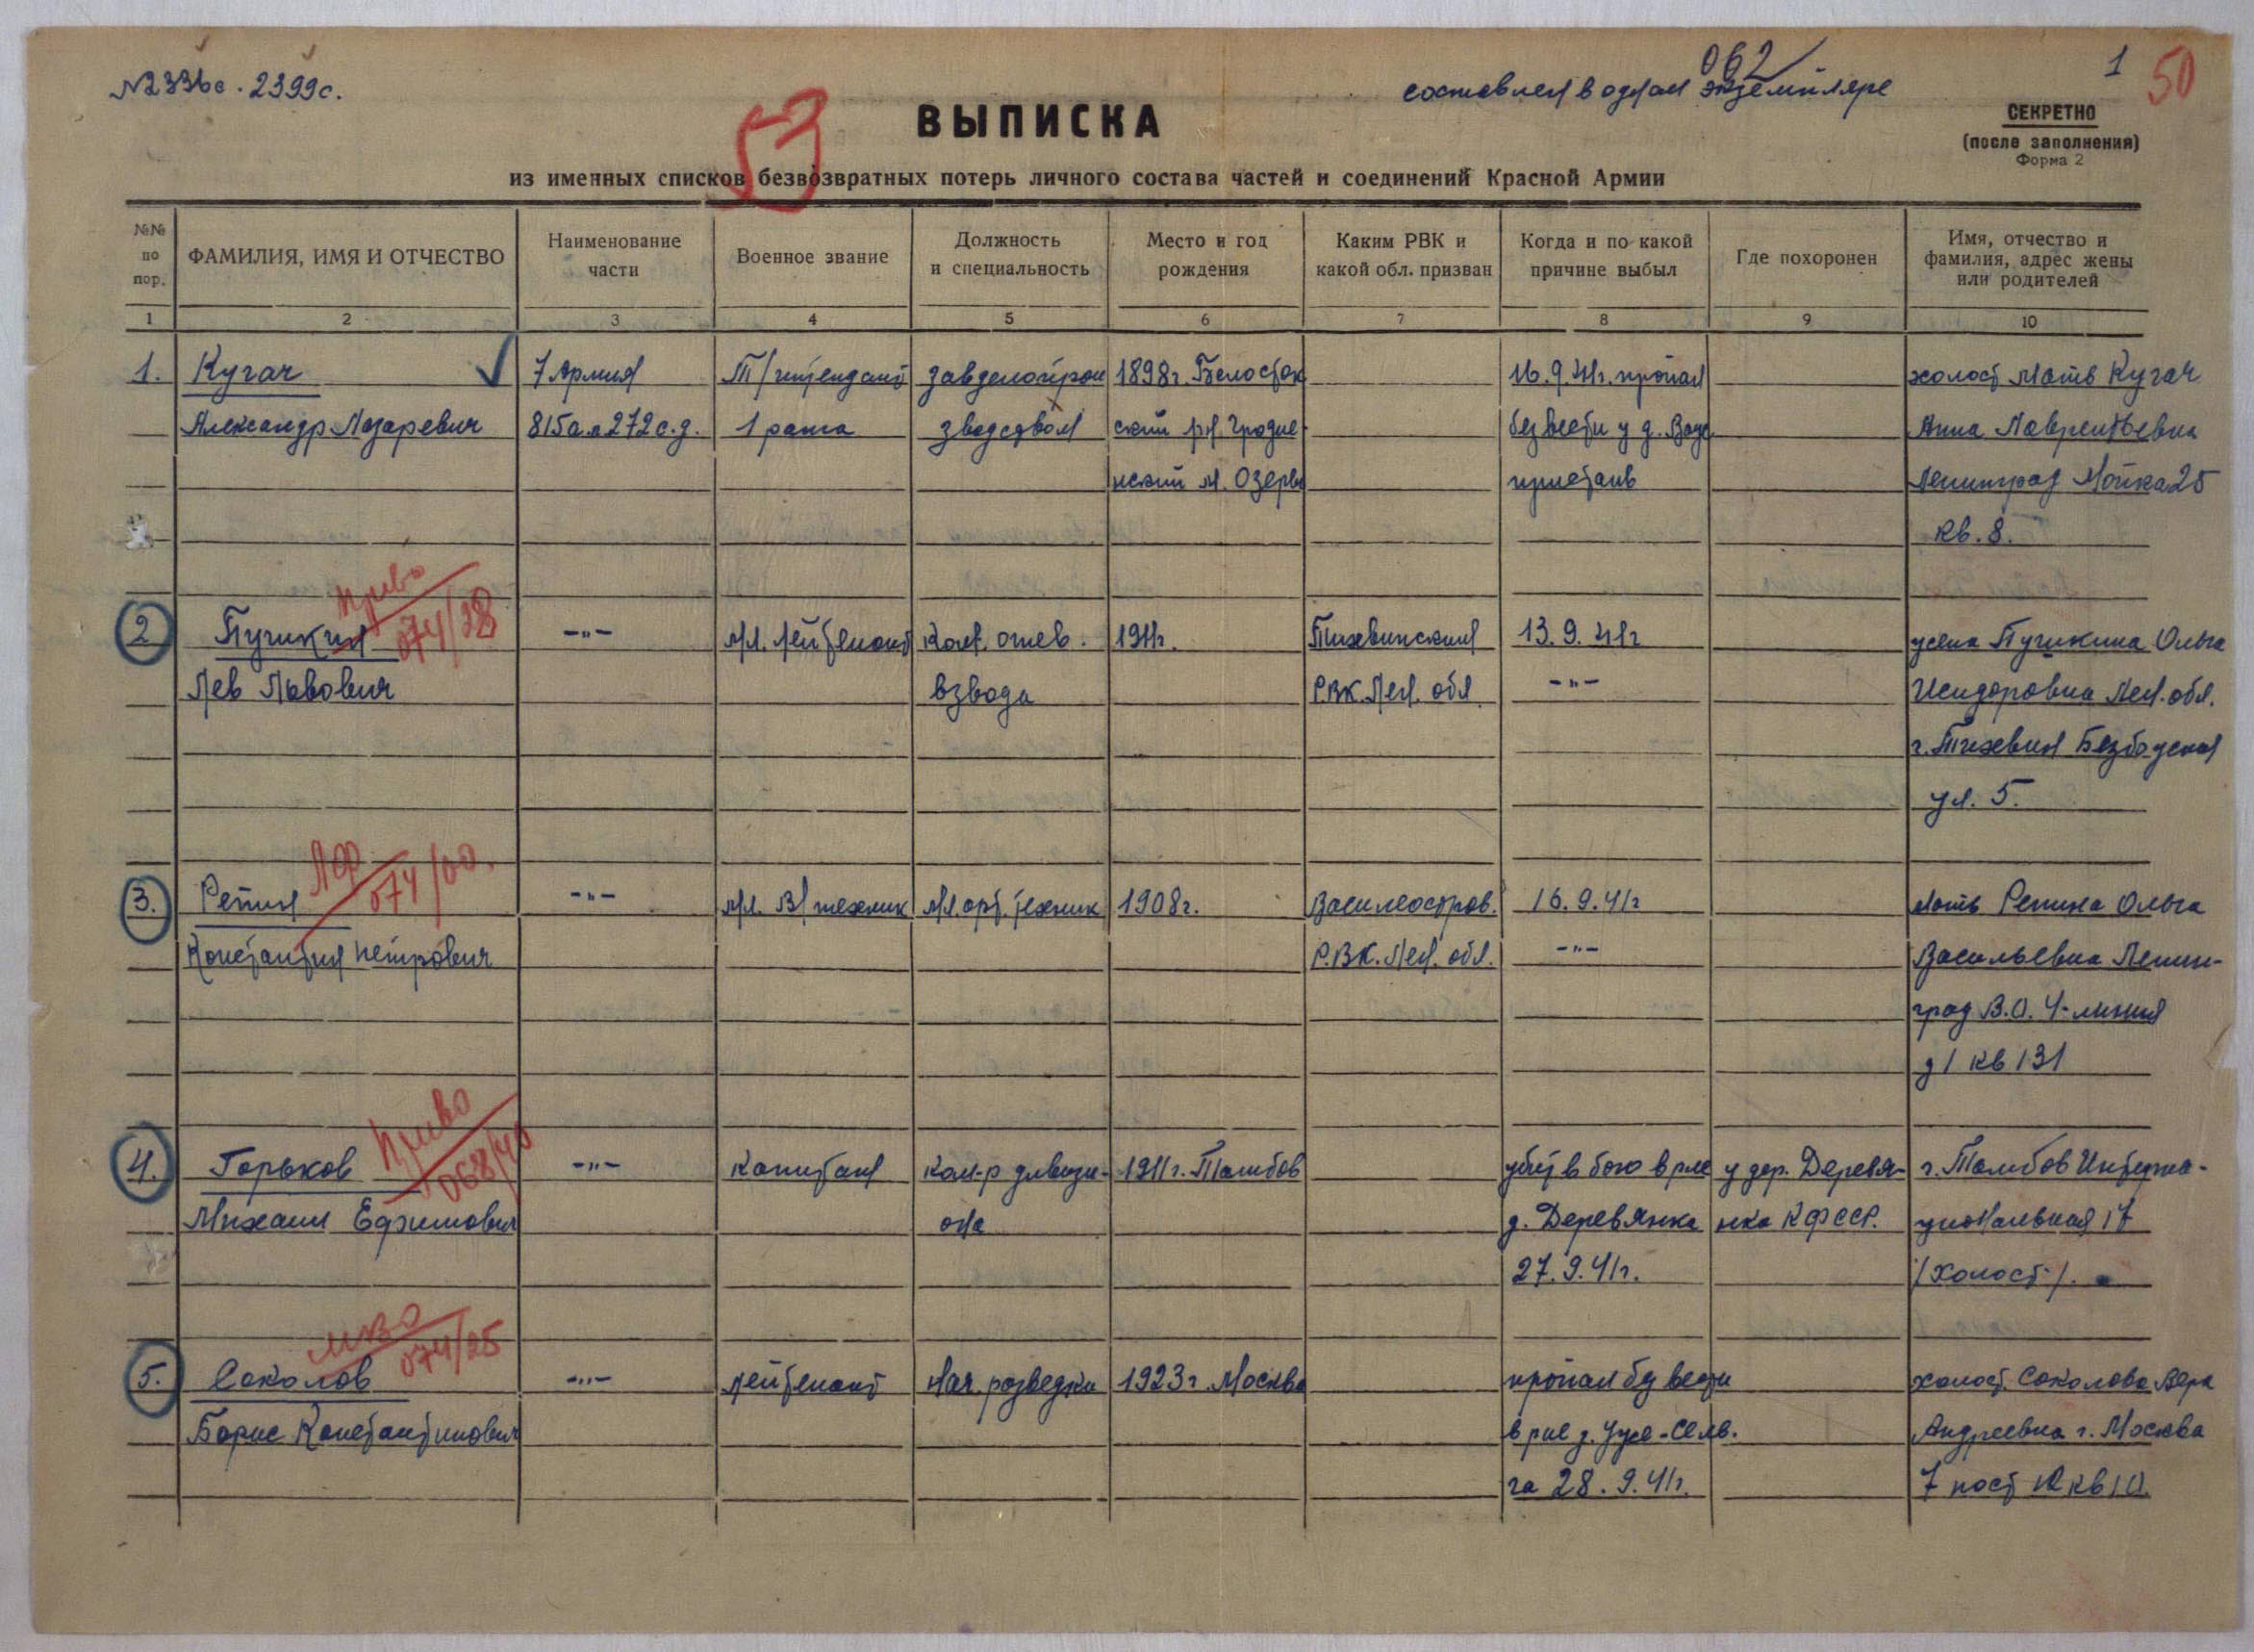 №2336с. 2399с.
062
составлен в одном экземпляре
1
50
СЕКРЕТНО
(после заполнения)
Форма 2
ВЫПИСКА
53
из именных списков безвозвратных потерь личного состава частей и соединений Красной Армии
№№ по пор.
ФАМИЛИЯ, ИМЯ И ОТЧЕСТВО
Наименование части
Военное звание
Должность и специальность
Место и год рождения
Каким РВК и какой обл. призван
Когда и по какой причине выбыл
Где похоронен
Имя, отчество и фамилия, адрес жены или родителей
1 2 3 4 5 6 7 8 9 10
1. Кугач 7 Армия Т/интендант завделопрои 1898г. Белосток 16.9.41г. пропал холост мать Кугач
Александр Лазаревич 815ап 272с.д. 1 ранга зводством ский р-н Гродне- без вести у д. Анна Лаврентьевна
нский м. Озеры пристань Ленинград Мойка 25
кв. 8.
Приво
074/28
2 Пушкин -"- мл. лейтенант Ком. огнев. 1911г. Тихвинский 13.9.41г жена Пушкина Ольга
Лев Львович взвода РВК. Лен. обл. -"- Исидоровна Лен. обл.
г. Тихвин Безбожная
ул. 5.
074/00.
3. Репин -"- мл. в/техник мл. арт. техник 1908г. Василеостров. 16.9.41г мать Репина Ольга
Константин Петрович Р.ВК. Лен. обл. -"- Васильевна Ленин-
град В.О. 4-линия
д1 кв 131
Приво
068/40
4. Горьков -"- Капитан ком-р дивизи- 1911г. Тамбов убит в бою в р-не у дер. Деревя- г. Тамбов Интерна-
Михаил Ефимович она д. Деревянка нка КФССР. циональная 17
27.9.41г. /холост/.
МВО
074/25
5. Соколов -"- лейтенант Нач. разведки 1923г. Москва пропал без вести холост. Соколова Вера
Борис Константинович в р-не д. Андреевна г. Москва
га 28.9.41г. 7